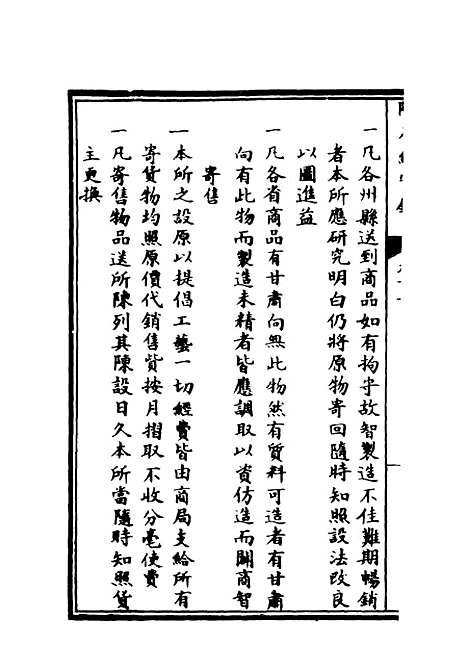 一凡各州縣送到商品如有拘守故智製造不佳難期暢銷
者本所應研究明白仍將原物寄回隨時知照設法改良
以圖進益
一凡各省商品有甘肅向無此物然有質料可造者有甘肅
向有此物而製造未精者皆應調取以資仿造而開商智
寄售
一本所之設原以提倡工藝一切經費皆由商局支給所有
寄貨物均照原價代銷售貲按月摺取不收分毫使費
一凡寄售物品送所陳列其陳設日久本所當隨時知照貨
主更換